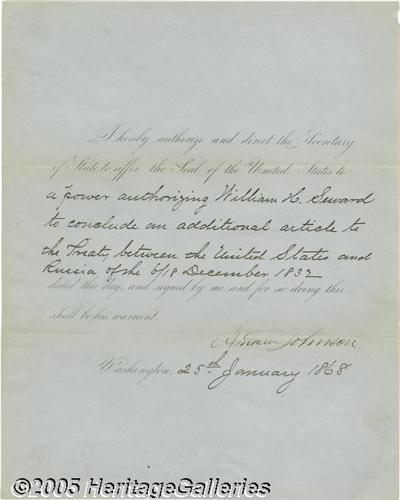 I hereby authorize and direct the Secretary
of State to affix the Seal of the United States to
a power authorizing William H. Seward
to conclude an additional article to
the Treaty, between the United States and
Russia of the 6/18 December, 1832
dated this day, and signed by me and for so doing this
shall be his warrant.
Andrew Johnson
Washington, 25th January 1868
©2005 HeritageGalleries